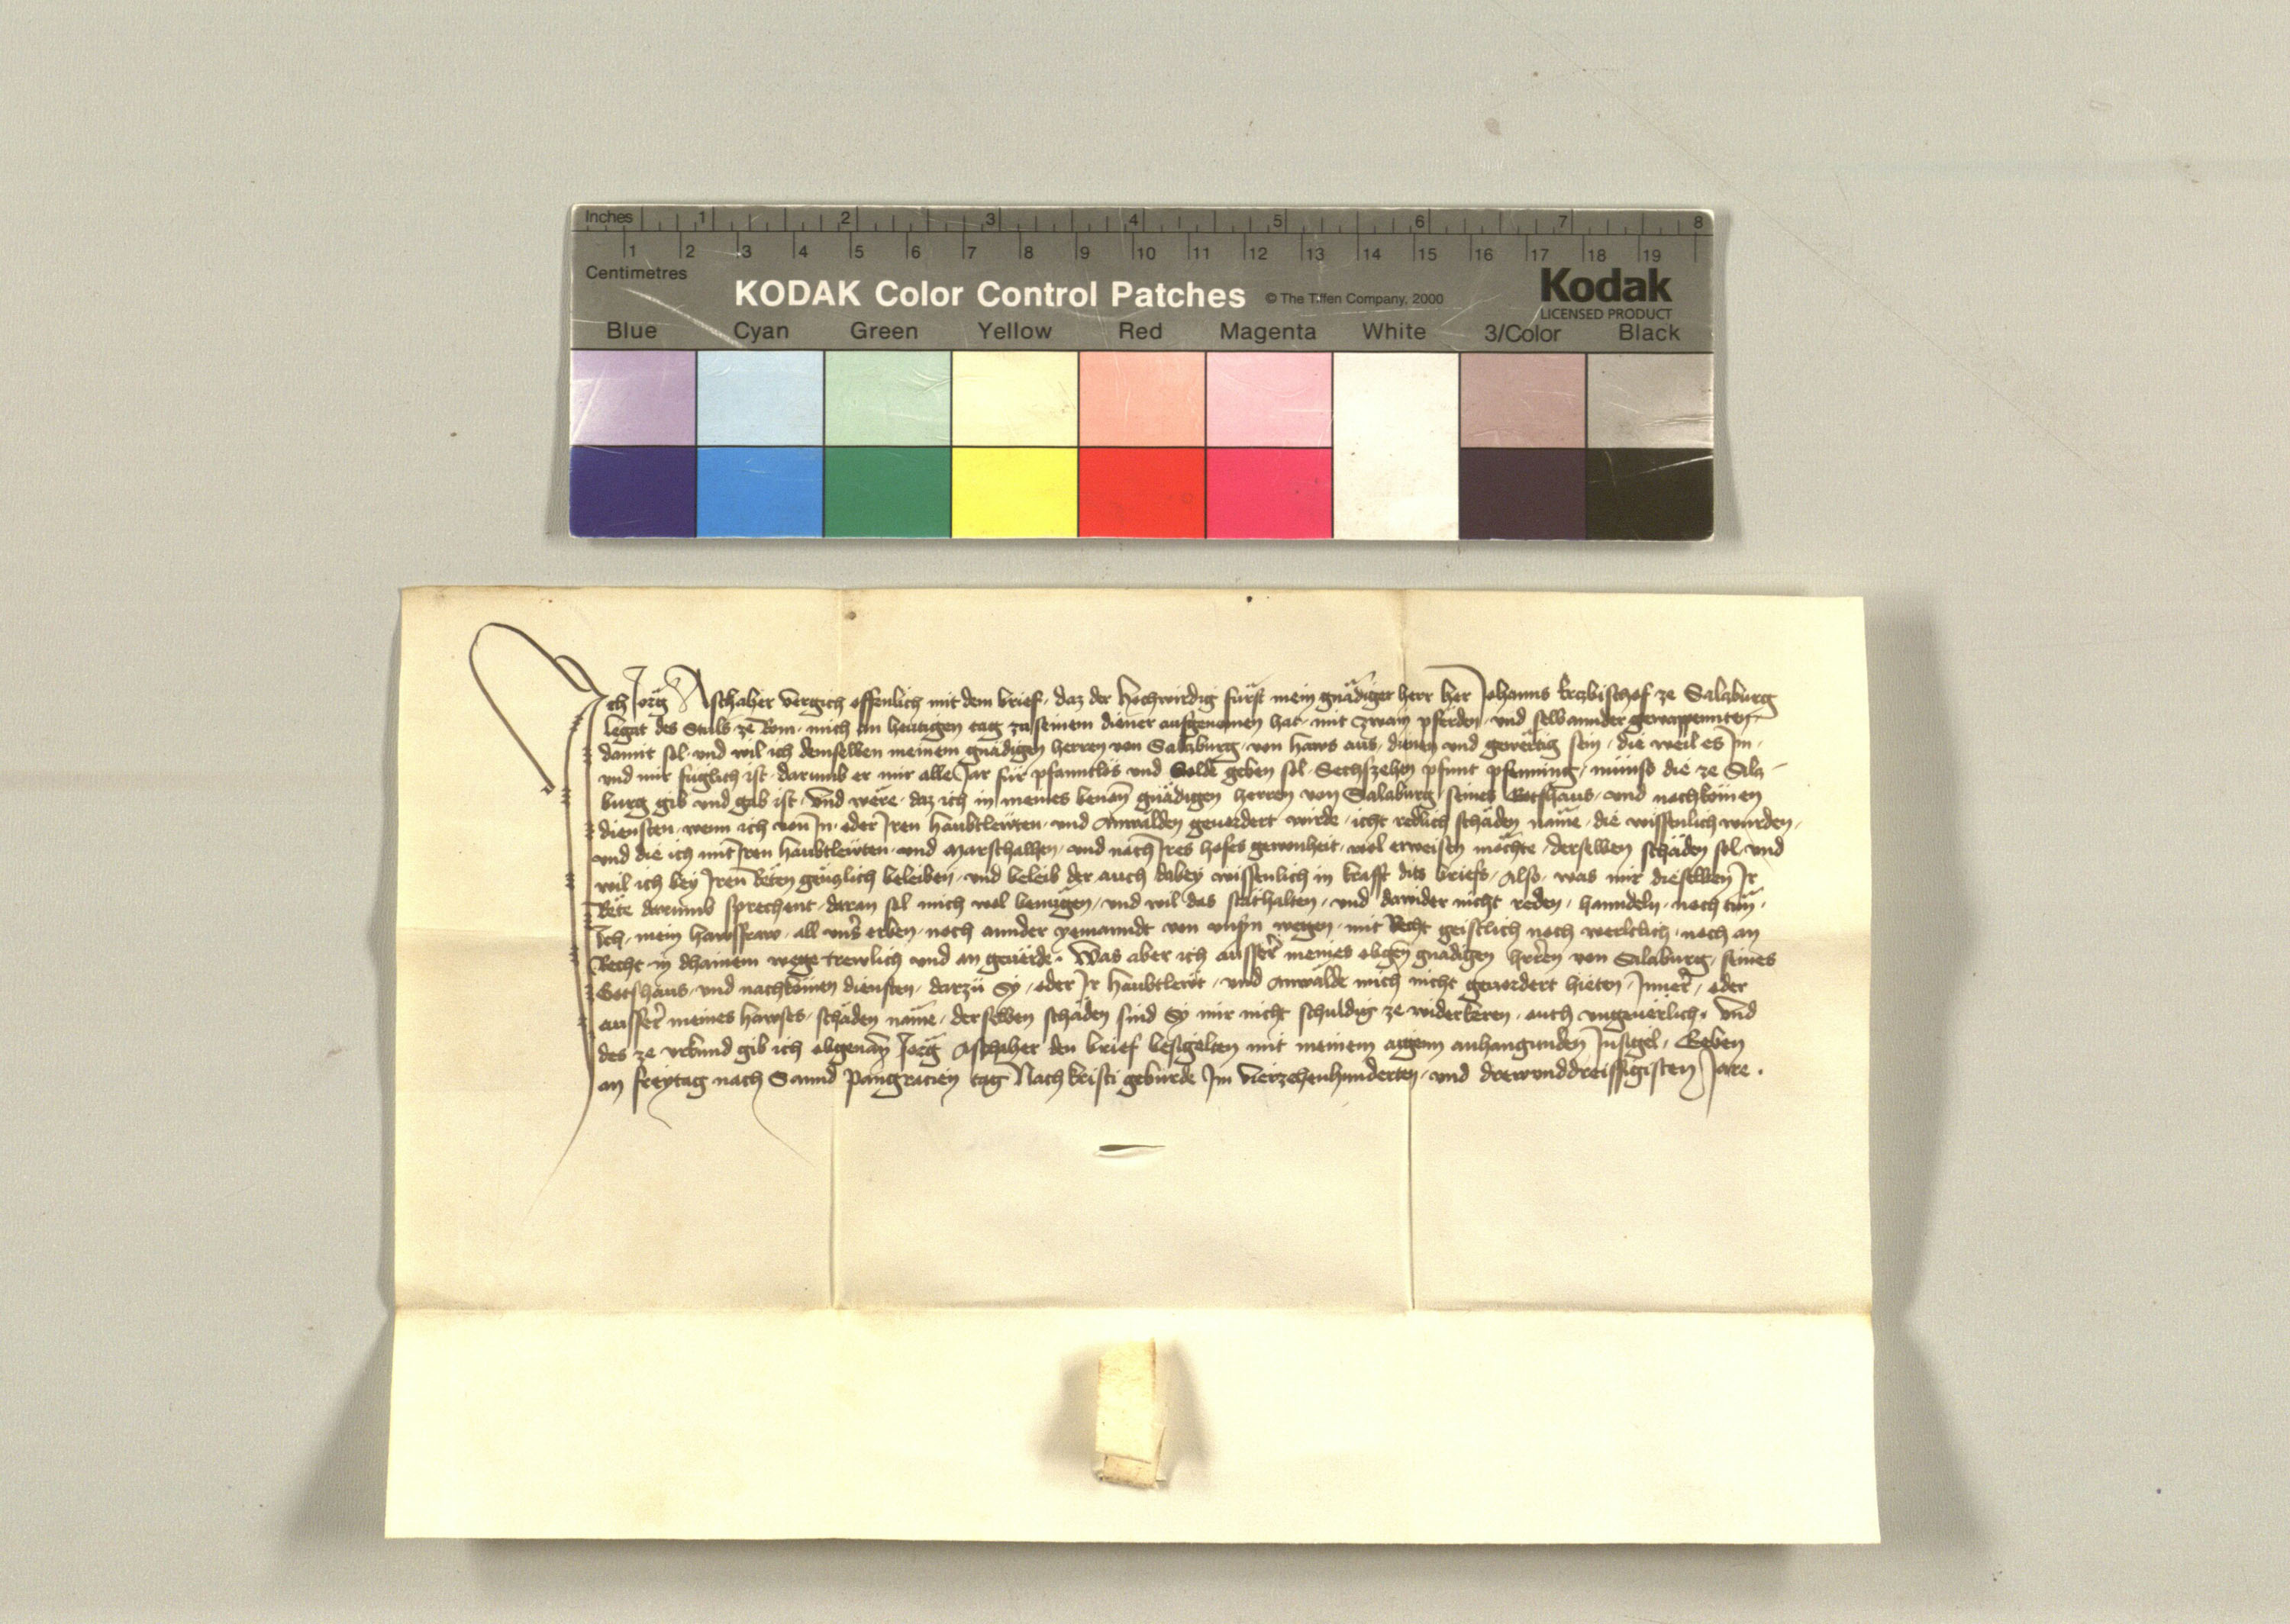 Inches 1 2 3 4 5 6 7 8
1 2 3 4 5 6 7 8 9 10 11 12 13 14 15 16 17 18 19
Centimetres
KODAK Color Control Patches © The Tiffen Company, 2000 Kodak
LICENSED PRODUCT
Blue Cyan Green Yellow Red Magenta White 3/Color Black
Ich Jörg Aschaher vergich offenlich mit dem brief, daz der hochwirdig fürst mein gnädiger herr her Johanns Erczbischof ze Salczburg
Legat des Stuls ze Rom, mich an heutigen tag zu seinem diener aufgenomen hat, mit zwain pferden, und selbannder gewappennter,
damit sol und wil ich demselben meinem gnädigen herren von Salczburg, von haws aus, dienen und gewertig sein, die weil es Im,
und mir füglich ist, darumb er mir alle Jar für pfanntlös und Solde geben sol, Sechszehen pfunt pfenning, münss die ze Salcz-
burg gib und gab ist, Und wëre, daz ich in meines benan̄ gnädigen herren von Salczburg, seines Gotshaus, und nachkömen
diensten, wenn ich von In, oder Iren haubtlewten, und Anwälden geuordert wirde, icht redlich schäden näme, die wissenlich wurden,
und die ich mit Iren haubtlewten, und Marschalhen, und nach Ires hofes gewonheit, wol erweisen möchte, derselben schäden sol und
wil ich bey Iren Räten genczlich beleiben, und beleib der auch dabey wissenlich in krafft dits briefs, Also, was mir dieselben Ir
Räte darumb sprechent, daran sol mich wol benügen, und wil das stäthalten, und dawider nicht reden, hanndeln, noch tün,
Ich, mein hawsfraw, all vns̄ erben, noch annder yemanndt von vnsn̄ wegen, mit Recht geistlich noch werltlich, noch an
Recht, in dhainem wege trewlich und an geuërde. Was aber ich ausser meines obgen̄ gnädigen herren von Salczburg, seines
Gotshaus, und nachkömen diensten, darzü Sy, oder Ir haubtlewt, und Anwälde mich nicht geuordert hieten, Inner, oder
ausser meines hawses, schäden näme, derselben schäden sind Sy mir nicht schuldig ze widerkeren, auch ungeuërlich. Und
des ze vrkund gib ich obgenan̄ Jörg Aschaher den brief besigelten mit meinem aigenn anhangunden Insigel, Geben
an freytag nach Sannd Pangracien tag Nach kristi gebürde Im Vierzehenhunderten, und drewunddreissigisten Jare.